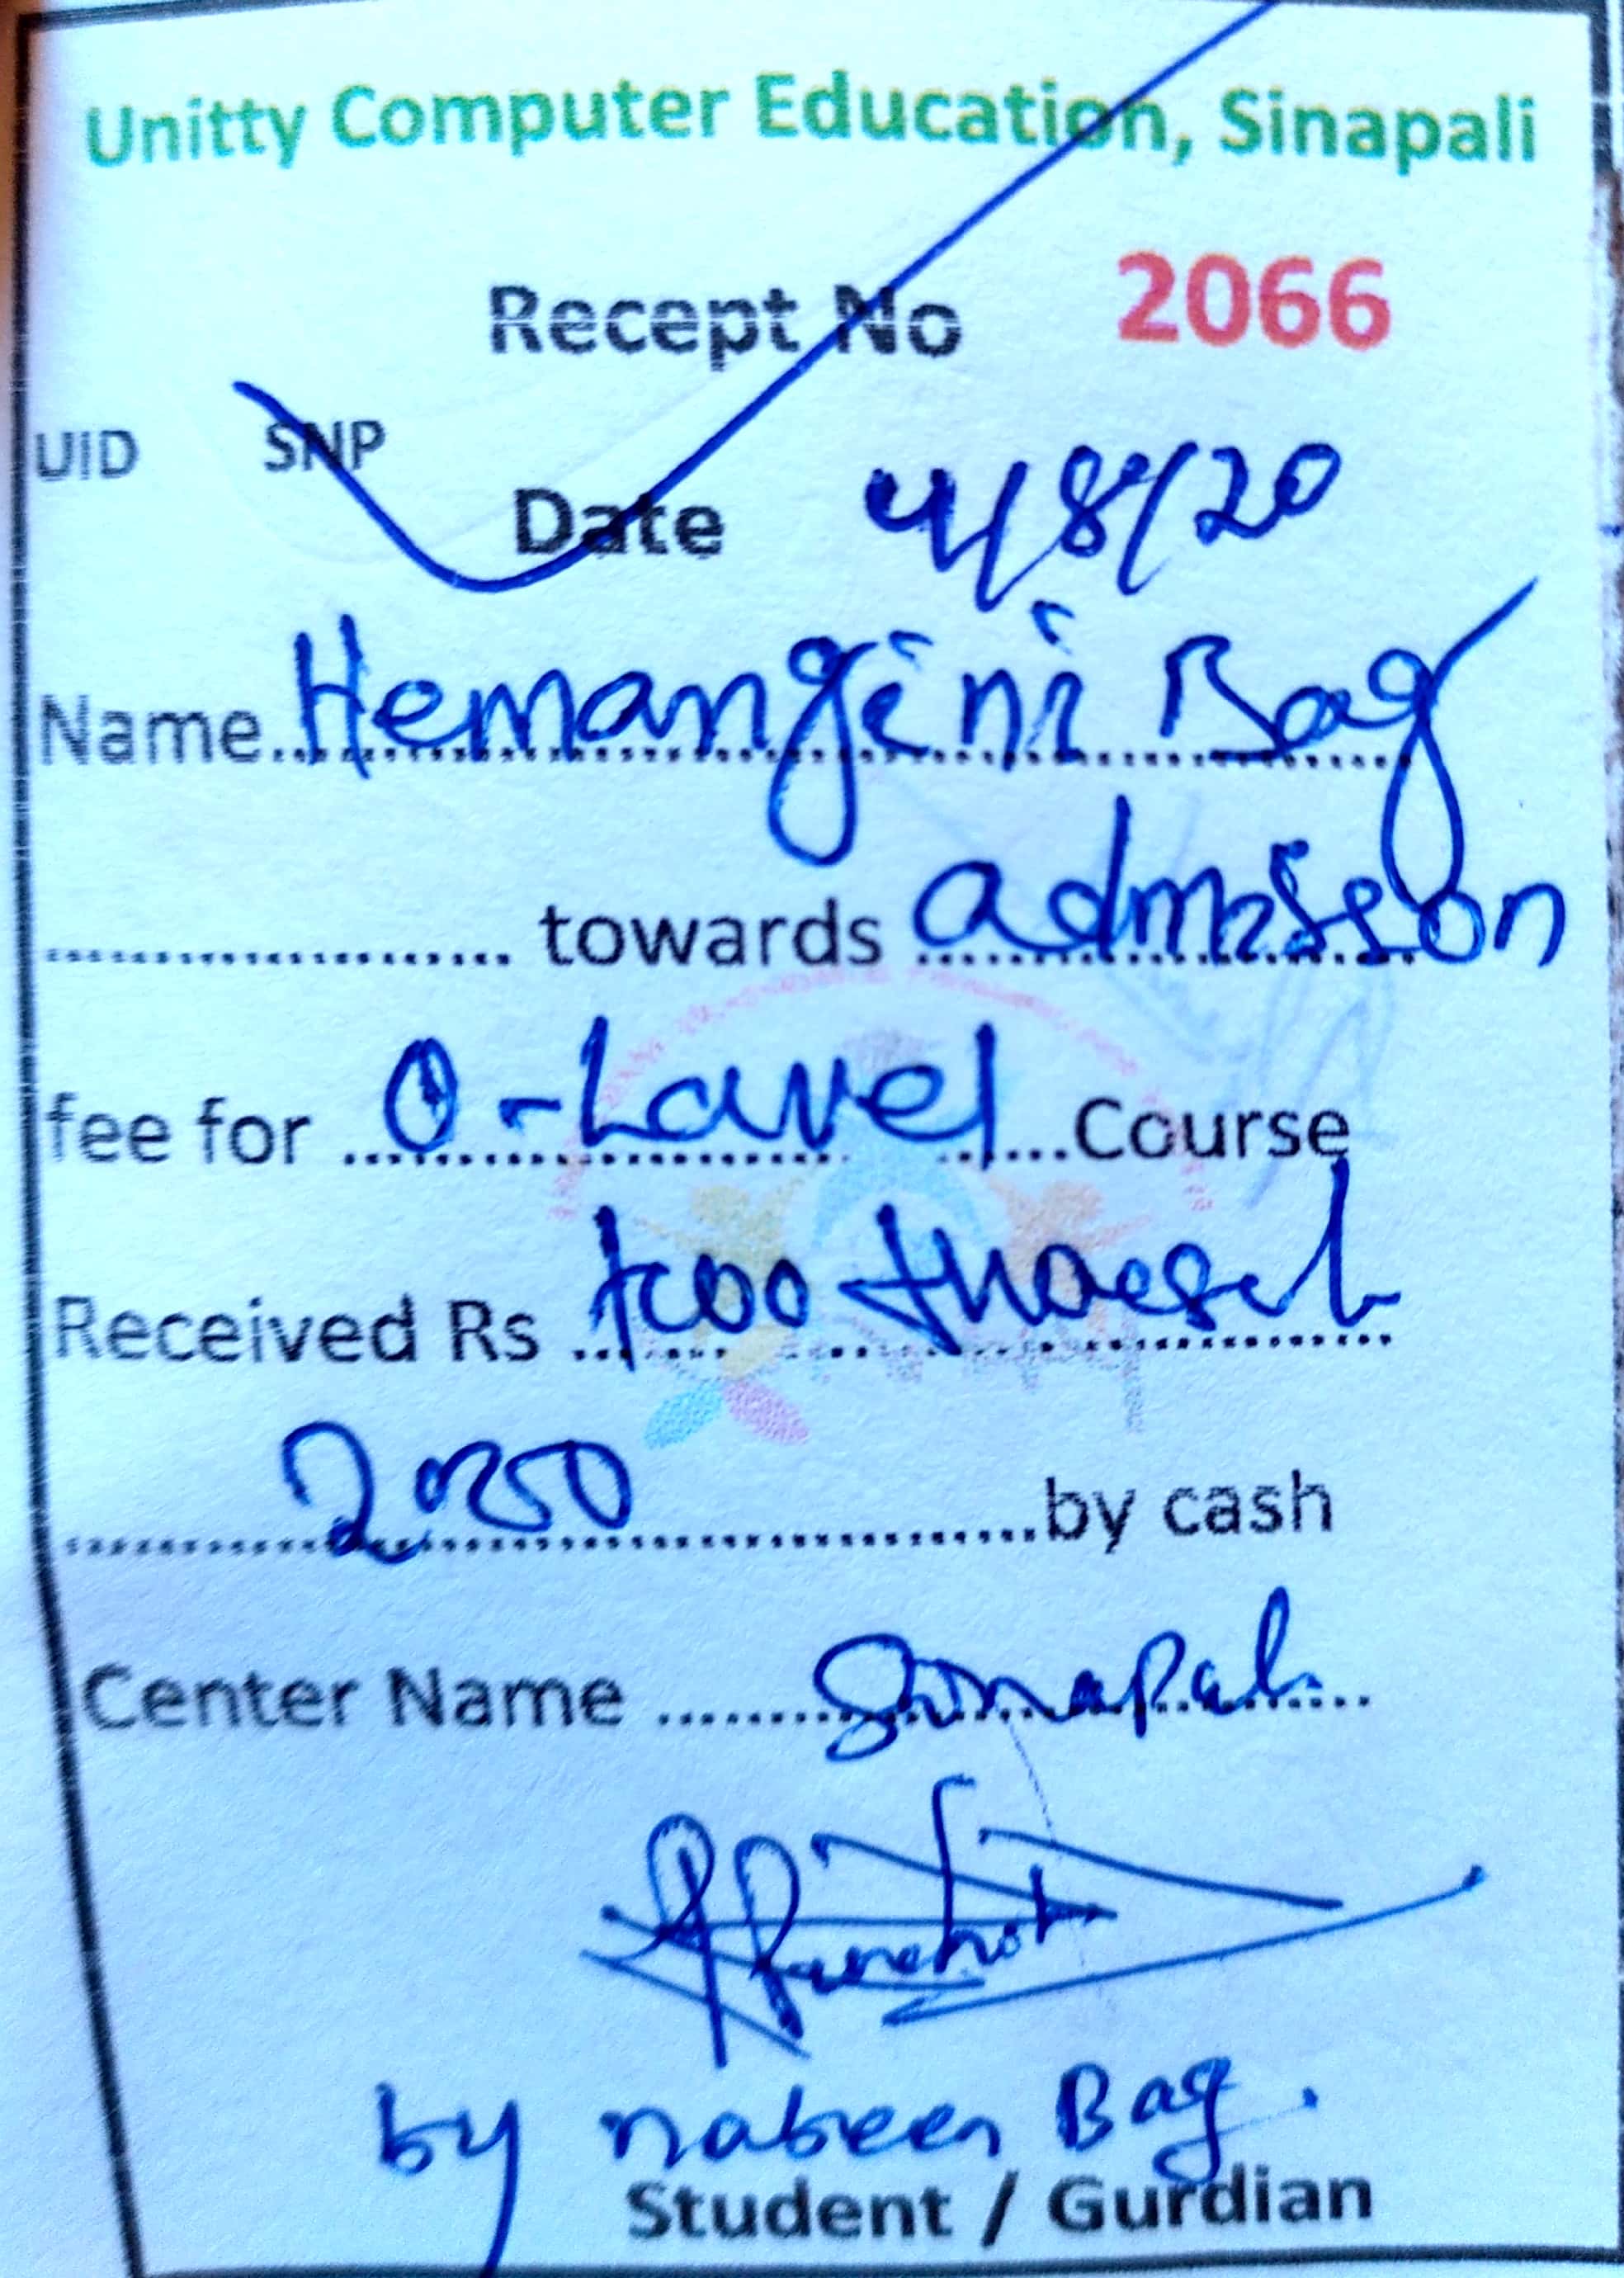 Unitty Computer Education, Sinapali
Recept No 2066
UID SNP
Date 4/8/20
Name Hemangini Bag
towards admission
fee for O-Lavel Course
Received Rs two
2000 by cash
Center Name Sinapali
by nabeen Bag.
Student / Gurdian